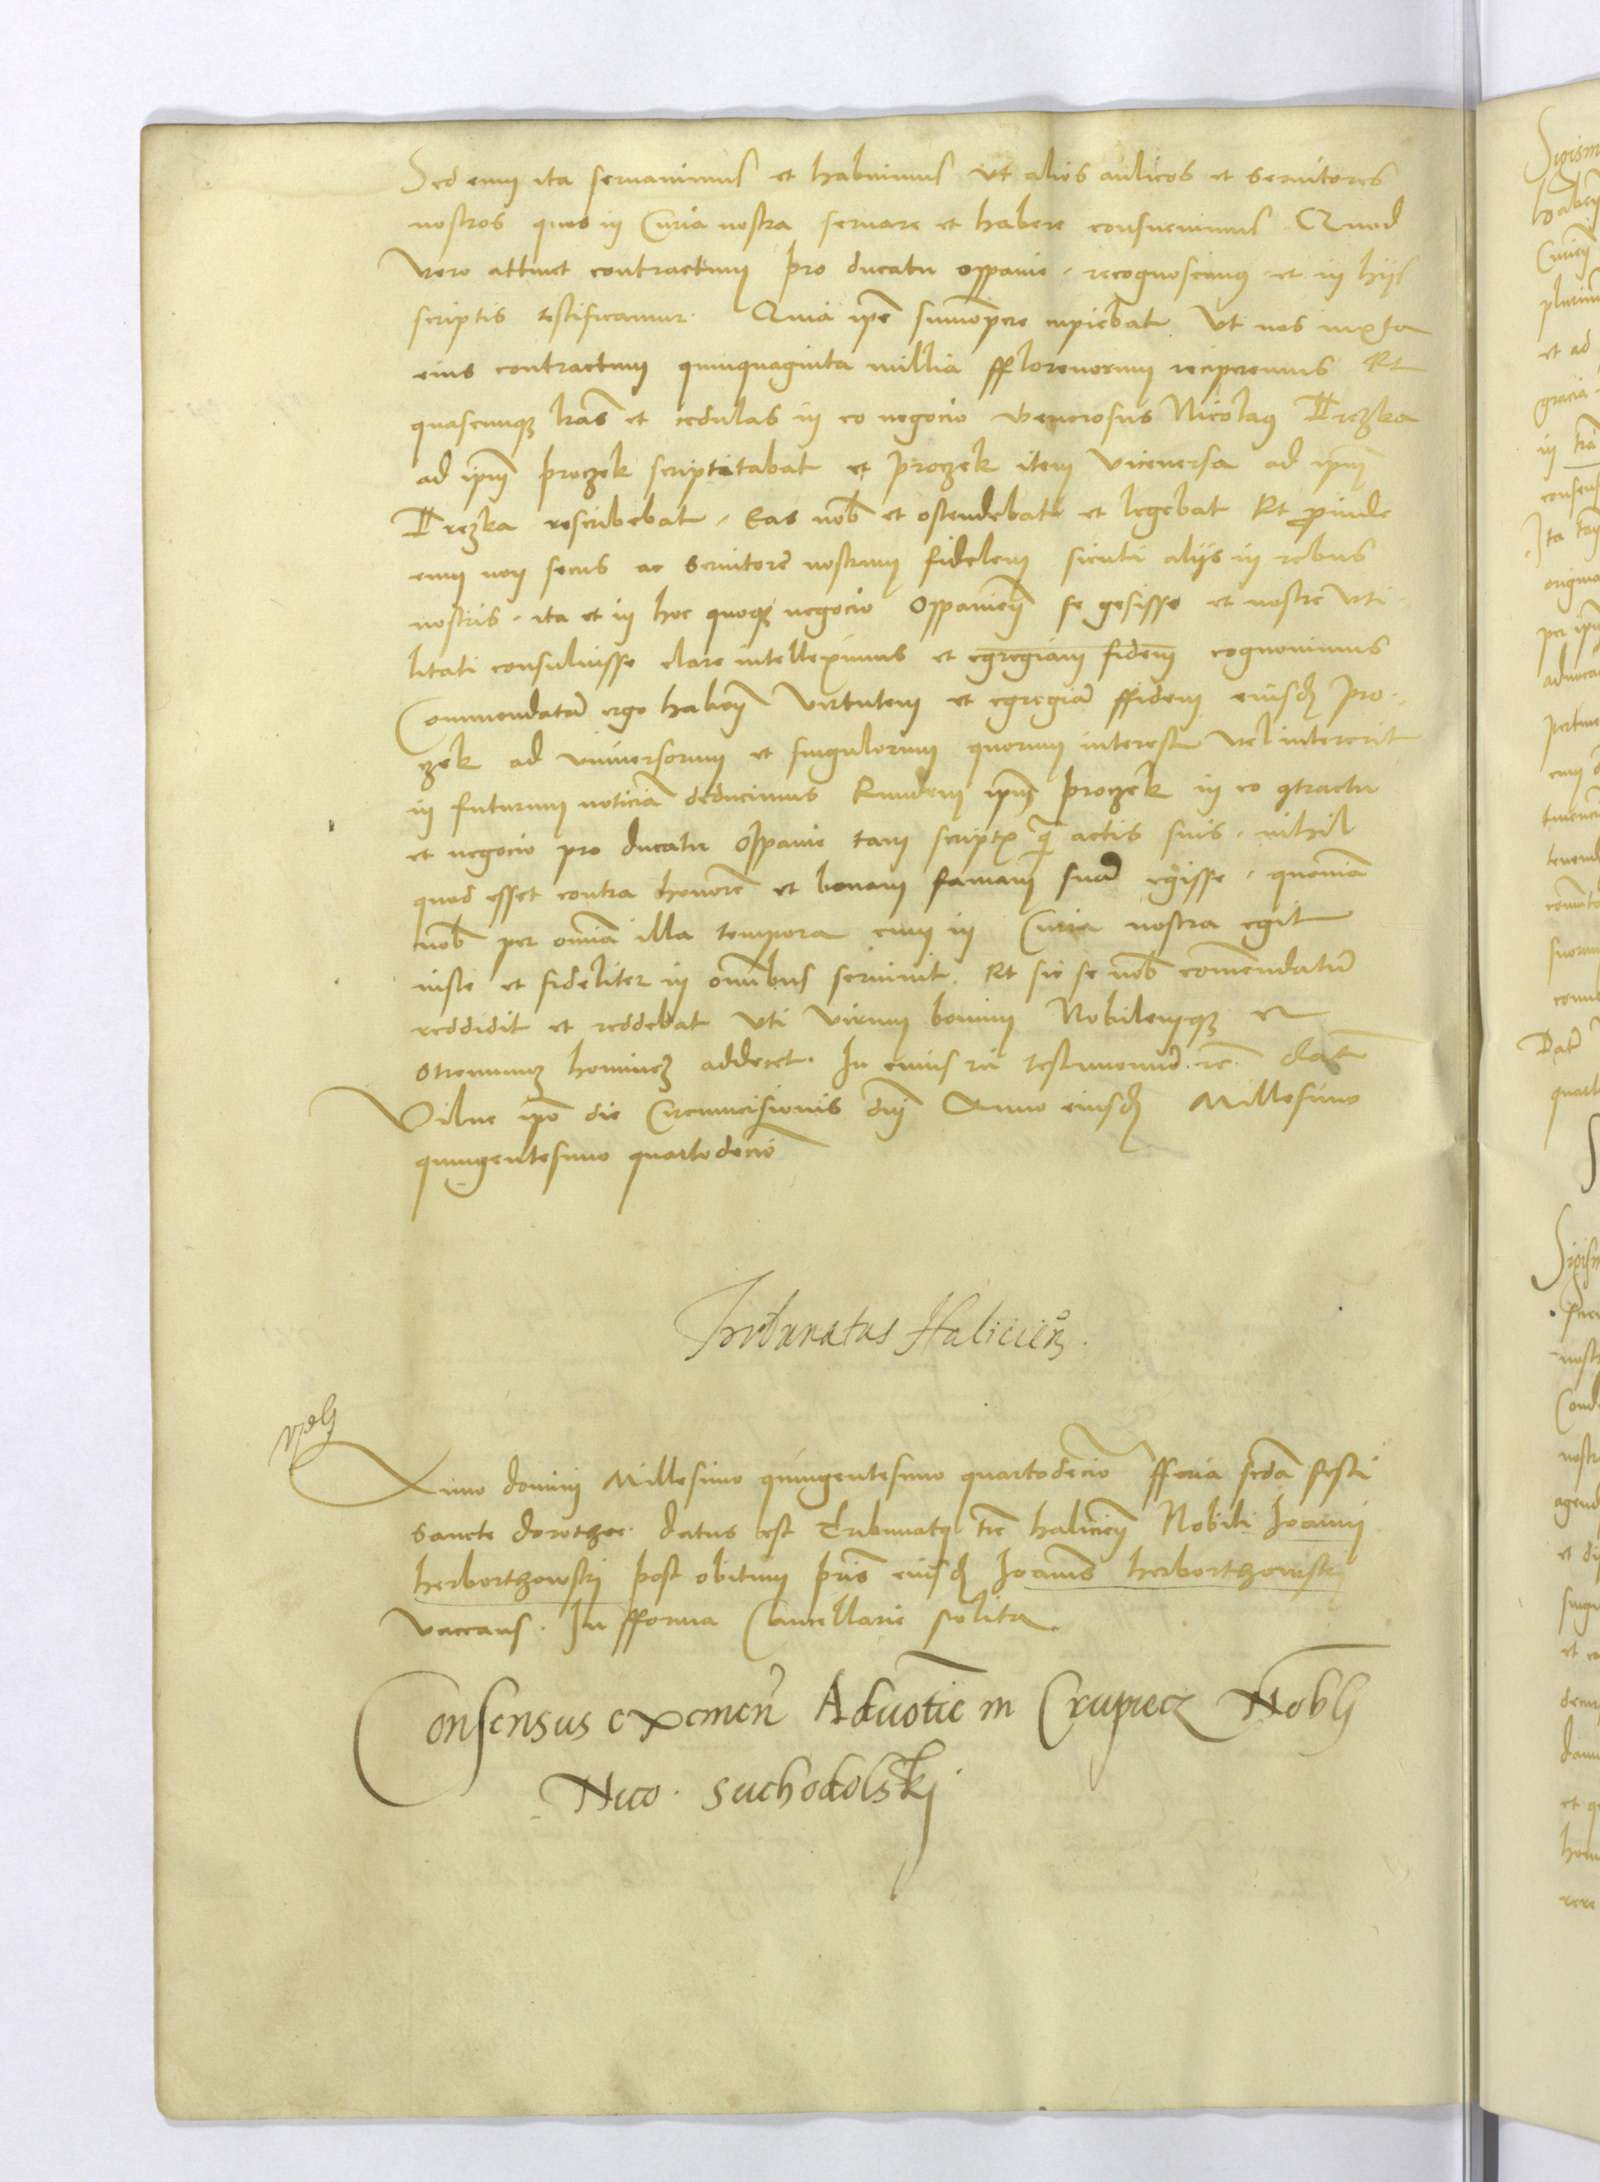 Sed eum ita servavimus et habuimus ut alios aulicos et servitores
nostros quos in Curia nostra servare et habere consuevimus Quod
vero attinet contractum pro ducatu oppavie recognoscimus et in hijs
scriptis testificamur. Quia ipse summopere cupiebat Ut nos iuxta
eius contractum quinquaginta millia fflorenorum reciperemus Et
quascumque l̃ras et cedulas in eo negocio Generosus Nicolaus Trczka
ad ipm̃ Proczek scriptitabat et Proczek item viceversa ad ipm̃
Trczka rescribebat, Eas nob̃ et ostendebat et legebat Et proinde
eum non secus ac servitorẽ nostrum fidelem sicuti alijs in rebus
nostris ita et in hoc quoque negocio Oppavieñ se gessisse et nostre uti
litati consuluisse clare intelleximus et egregiam fidem cognovimus
Commendatam ergo habeñ virtutem et egregiã ffidem eiusd̃ Pro
czek ad universorum et singulorum quorum interest vel intererit
in futurum noticiã deducimus Eundem ipm̃ Proczek in eo contractu
et negocio pro ducatu Oppavie tam scriptis q̃ actis suis nihil
quod esset contra honorẽ et bonam famam suã egisse, quoniã
nob̃ per omĩa illa tempora cum in Curia nostra egit
iuste et fideliter in omĩbus servivit. Et sic se nob̃ com̃endatum
reddidit et reddebat uti virum bonum Nobilemque et
strenuum hominem addecet. In cuius rei testimoniũ. etc. Dat̃
Vilne ipõ die Circumcisionis dñi Anno eiusd̃ Millesimo
quingentesimo quartodecĩo
Tribunatus Haliciẽn.
Anno domini Millesimo quingentesimo quartodecĩo fferia scd̃a festi
Sancte dorothee. datus est Tribunatus tr̃e halicieñ Nobili Ioanni
herborthowskj post obitum pr̃is eiusd̃ Ioannis herborthowskj
vaccans. In fforma Cancellarie solita
Consensus exemeñ Advotie in Crupiecz Nobli
Nico. Suchodolskj